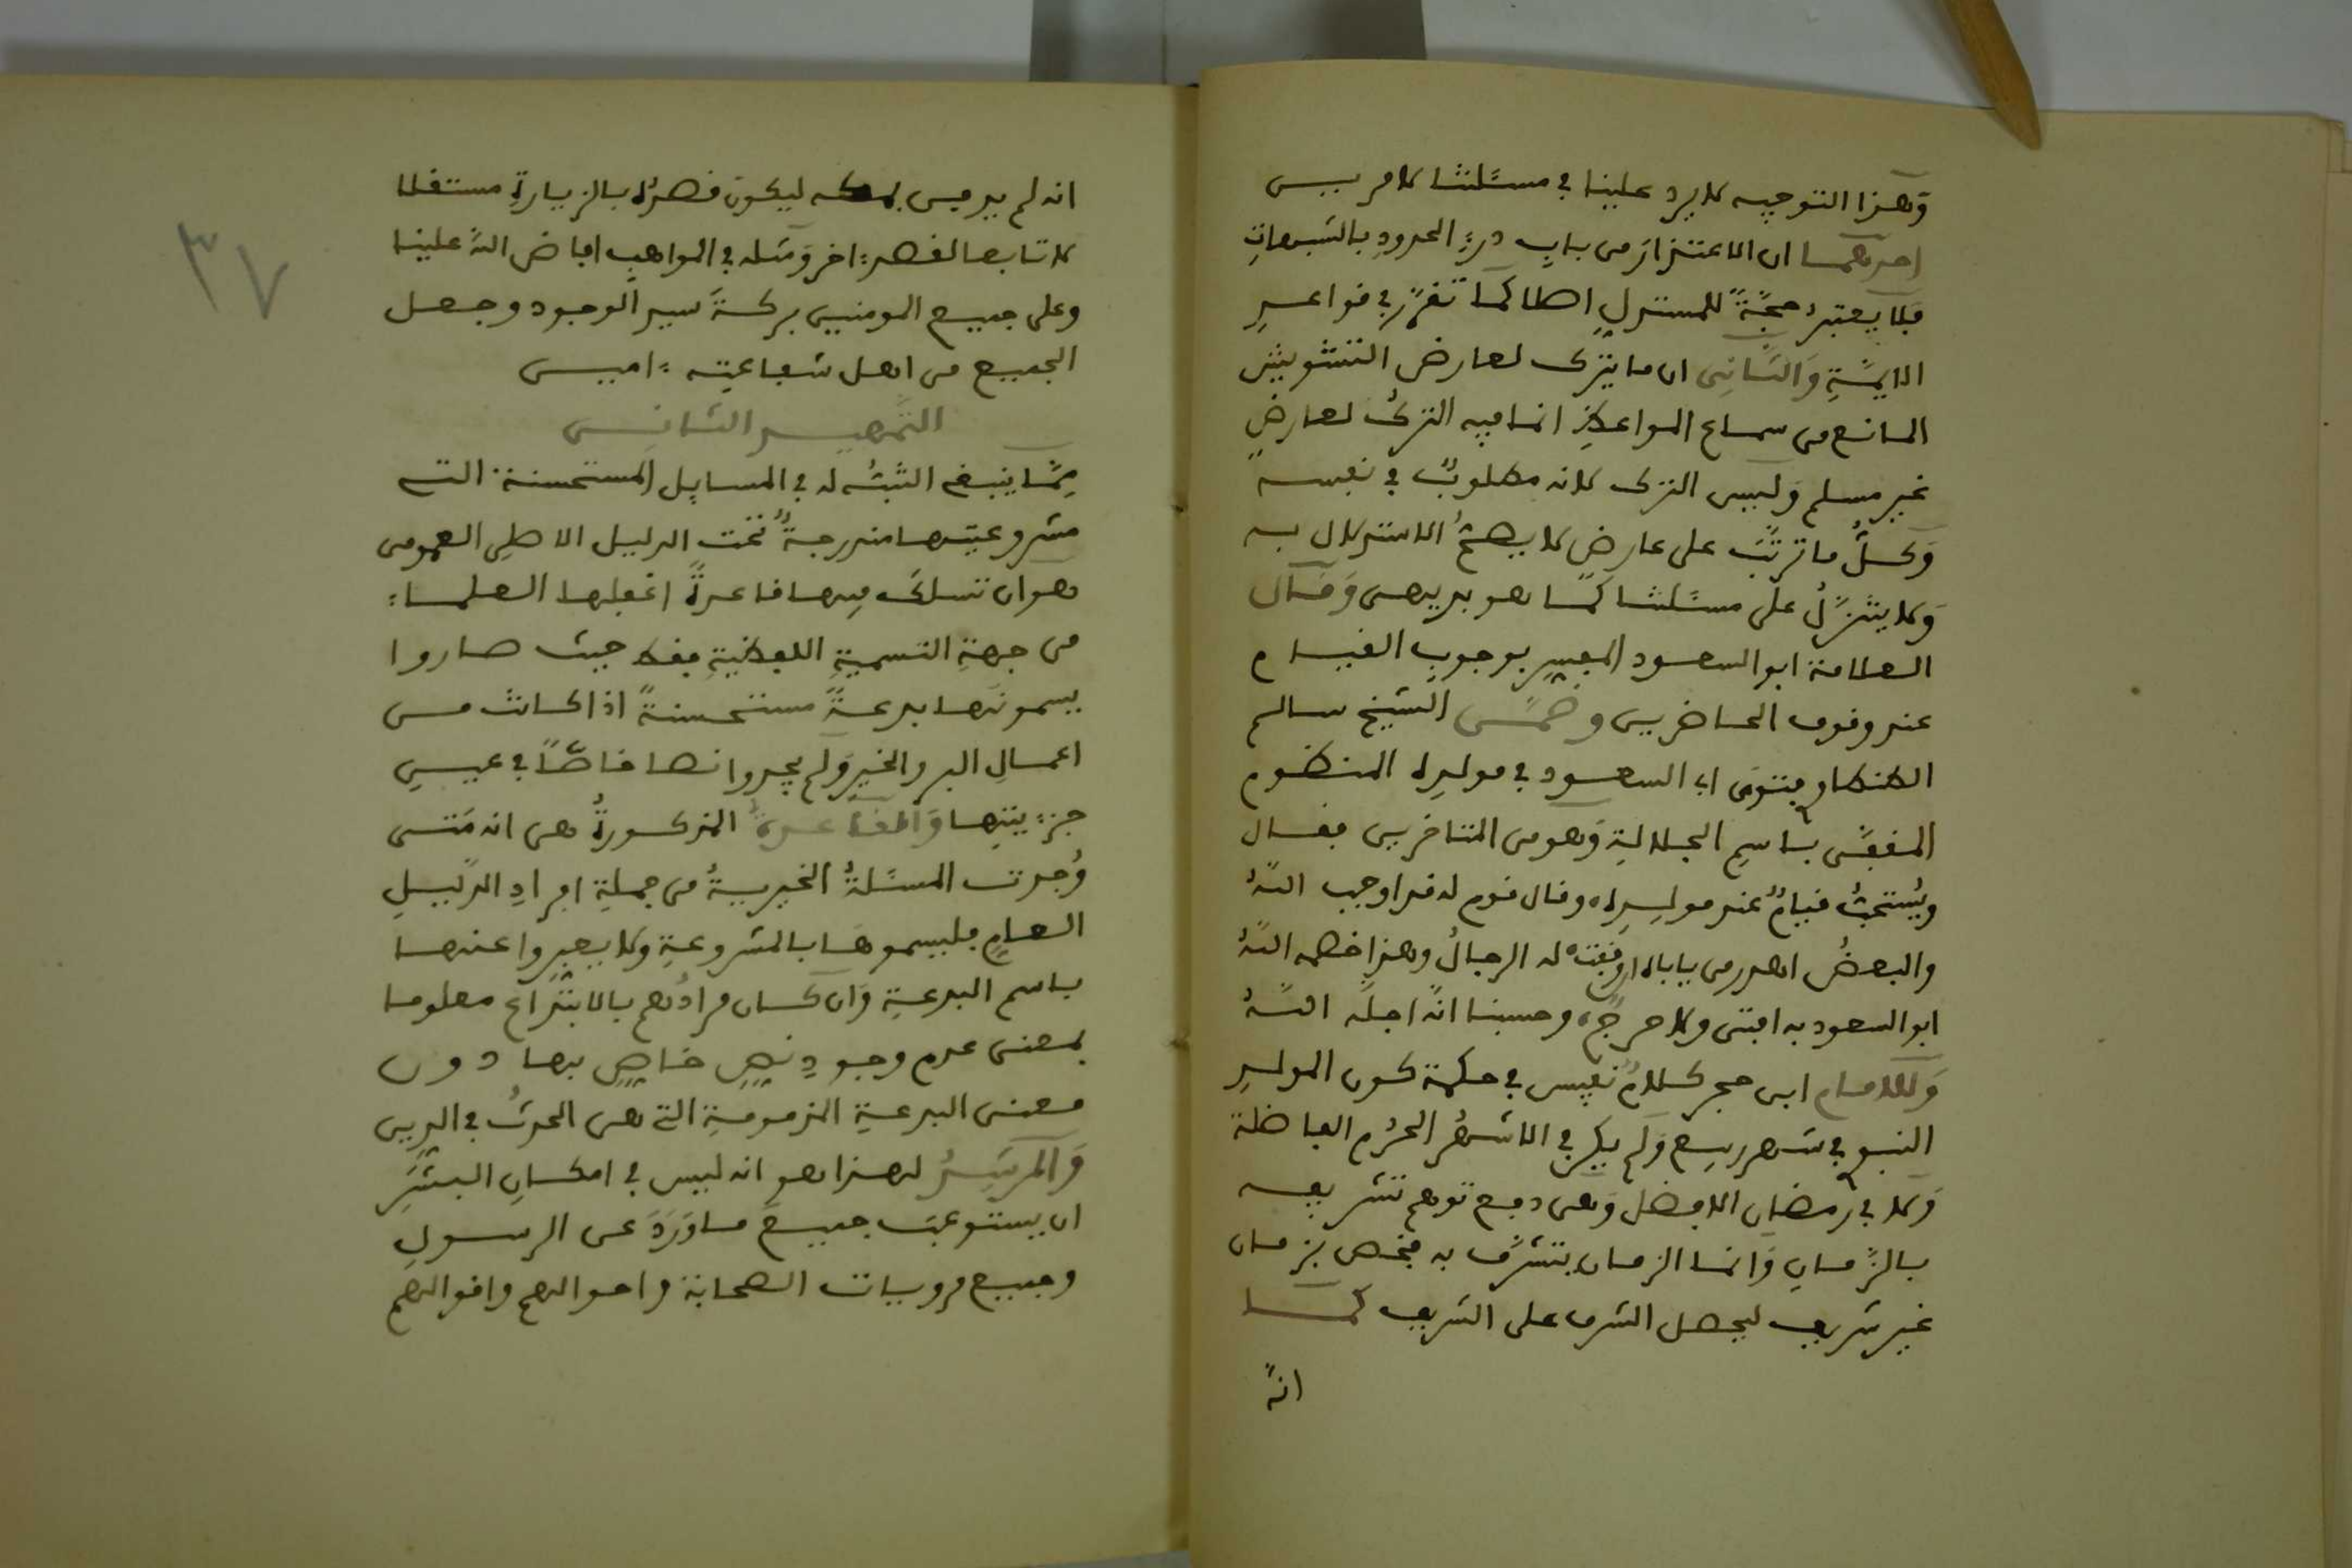 وَهذا التوجيه لا يرد علينا في مسئلتنا لامرين
احدهما ان الاعتذار من باب درءِ الحدودِ بالشبهاتِ
فلا يعتبرُ حجةً للمستدلِ اصلا كما تقرّر في قواعدِ
الايمّةِ وَالثّانِي ان ما يترك لعارض التشويش
المانع من سماع المواعظِ انما فيه التركُ لعارضٍ
غير مسلم وَليس الترك لانه مطلوبٌ في نفسه
وَكلُّ ما ترتّبَ على عارض لا يصحُّ الاستدلال به
وَلا يتنزّلُ على مسئلتنا كمَا هو بديهى وَقال
العلامة ابو السعود المفسر بوجوب القيام
عند وقوف الحاضرين وضمّن الشيخ سالم
الطنطاوي فتوى ابى السعود في مولدِه المنظوم
المقفّى باسمِ الجلالةِ وَهو من المتاخرين فقال
ويُستحبُّ قيامٌ عند مولِدِه وقال قوم له قد اوجب اللهُ
والبعضُ اهدر من يأباه ان وقفتْ له الرجالُ وهذا خصمه اللهُ
ابو السعود به افتى ولا حرجٌ وحسبنا انّه اجلّه اللهُ
وَللامام ابن حجر كلامٌ نفيس في حكمة كون المولدِ
النبوي في شهر ربيع وَلم يكن في الاشهُر الحرُم الفاضلة
وَلا في رمضان الافضل وَهى دفع توهم تشريفه
بالزّمانِ وَانما الزمان يتشرّف به فخص بزمان
غير شريف ليحصل الشرف على الشريف كما
انهُ
٣٧
انه لم يدفن بمكه ليكون قصدُه بالزيارةِ مستقلا
لا تابعا لقصدٍ اخر وَمثله في المواهب افاض اللهُ علينا
وعلى جميع المومنين بركةَ سيد الوجود وجعل
الجميع من اهل شفاعتِه امين
التّمهيد الثانى
مِمّا ينبغي التنبُّه له في المسايِل المستحسنة التى
مشروعيتها مندرجةٌ تحت الدليل الاصلِى العمومى
هو ان تسلك فيها قاعدةً اغفلها العلماء
من جهةِ التسميةِ اللفظيةِ فقط حيث صاروا
يسمونَها بدعةً مستحسنةً اذا كانت من
اعمالِ البر والخيرِ وَلم يجدوا نصا خاصّاً في عينِ
جزءيتِها وَالقاعدةُ المذكورةُ هى انه مَتى
وُجدت المسئلةُ الخيريةُ من جملةِ افرادِ الدّليلِ
العامِ فليسموهَا بالمشروعةِ ولا يعبروا عنها
باسم البدعةِ وَان كان مرادُهم بالابتداعِ معلوما
بمعنى عدم وجودِ نصٍ خاصٍ بها دون
معنى البدعةِ المذمومةِ التي هى الحدثُ في الدين
وَالمرشِدُ لهذا هو انه ليس في امكانِ البشَرِ
ان يستوعبَ جميعَ ما وَرَدَ عن الرسولِ
وجميع مرويات الصحابة واحوالهم واقوالهم